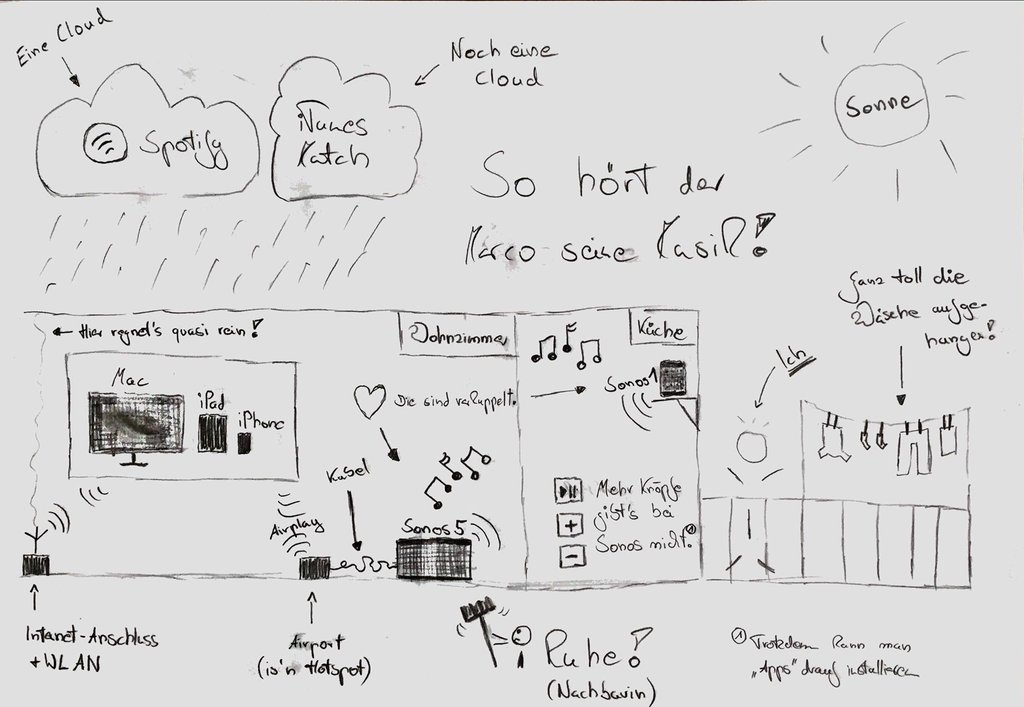 Eine Cloud
Noch eine
Cloud
Spotify
iTunes
Match
Sonne
So hört der
Marco seine Musik!
Ganz toll die
Wäsche aufge-
hangen!
← Hier regnet's quasi rein!
Wohnzimmer
Küche
Mac
iPad
iPhone
Die sind verkuppelt.
Sonos 1
Ich
Kabel
Airplay
Sonos 5
Mehr Knöpfe
gibt's bei
Sonos nicht.①
Internet-Anschluss
+ WLAN
Airport
(is'n Hotspot)
Ruhe!
(Nachbarin)
① Trotzdem kann man
„Apps" drauf installieren